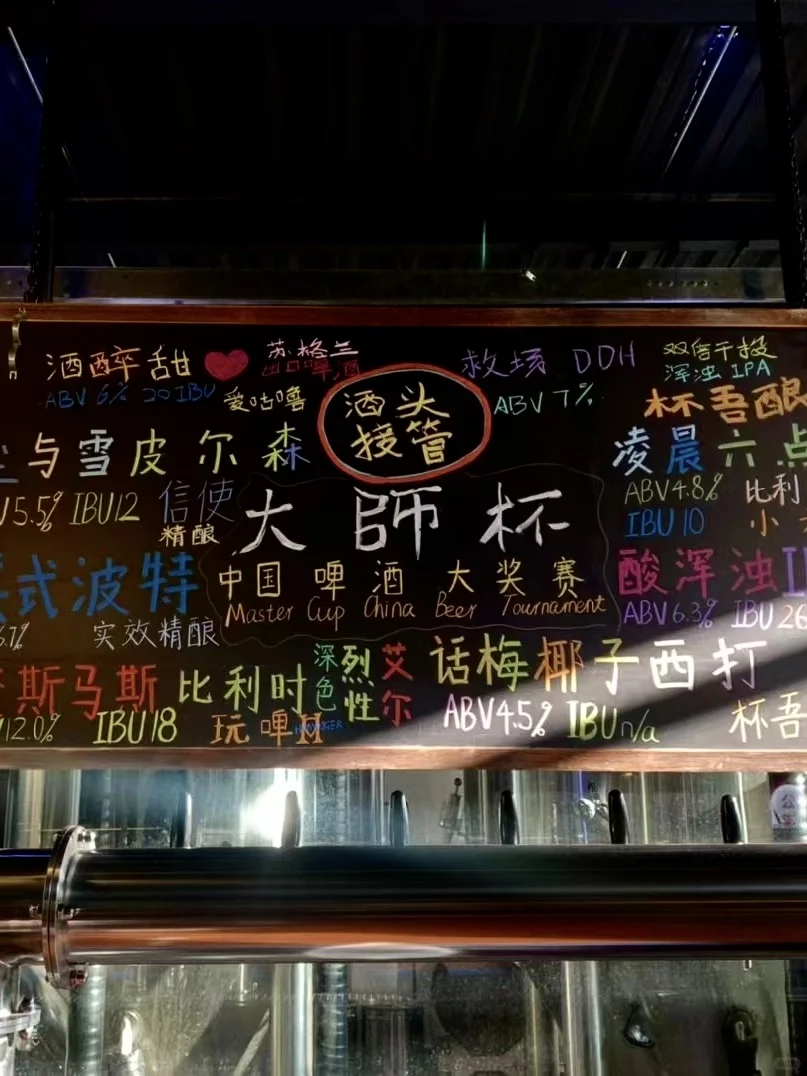 酒醉甜 苏格兰出口啤酒
ABV 6% 20 IBU 爱咕噜
酒头
接管
救场 DDH 双倍干投
浑浊 IPA
ABV 7%
杯吾酿
与雪皮尔森
V5.5% IBU12 信使
精酿
凌晨六点
ABV4.8% 比利
IBU 10 小
大師杯
中国啤酒大奖赛
Master Cup China Beer Tournament
式波特
6.1% 实效精酿
酸浑浊I
ABV 6.3% IBU 26
斯马斯 比利时 深色 烈性 艾尔
12.0% IBU18 玩啤
话梅椰子西打
ABV4.5% IBU n/a 杯吾